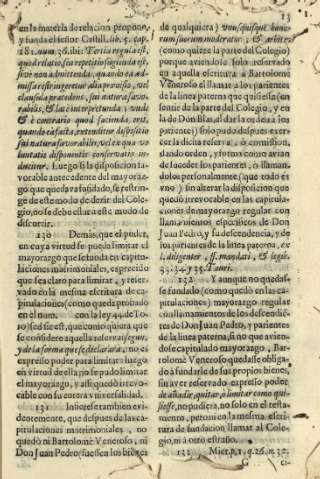 13
en la materia de relacion proponen,
y funda el señor Castill. lib. 5. cap.
181. num. 26. ibi: Tertia regula est,
quod relatio seu repetitio sugienda est,
sive non admittenda, quando ea ad-
missa
clausula præcedens, sui natura favo-
rabilis, & lac interpretanda; unde
& è contrario quod facienda erit,
quando ea facta, extenditur dispositio
sui natura favorabilis, vel ex qua vo
luntatis disponentis conservatio in-
ducitur. Luego si la disposicion fa-
vorable antecedente del mayoraz-
go que queda fundado, se restrin-
ge de este modo de dezir del Cole-
gio, no se debe estar a este modo de
discurrir.
130 Demàs, que el poder,
en cuya virtud se pueda limitar el
mayorazgo que se funda en capitu-
laciones matrimoniales, es preciso
que sea claro para limitar, y reser-
vado en la mesma escritura de ca-
pitulaciones (como queda probado
en el num. con la ley 44. de To-
ro) sed sic est, que como quiera que
se considere aquella reserva, segun,
y de la forma que se declararàn; no es
expresso poder para limitar: luego
en virtud de ella, no se pudo limitar
el mayorazgo, y assi quedò irrevo-
cable con su entera universalidad.
131 Infierese tambien evi-
dentemente, que despues de las ca-
pitulaciones matrimoniales, no
quedò ni Bartolomè Veneroso, ni
Don Juan Pedro, fuessen los bienes
de qualquiera) vou, quisquis bono-
rum suorum moderator, & arbiter
(como quiere la parte del Colegio)
porque aviendose solo reservado
en aquella escritura à Bartolomè
Veneroso el llamar à los parientes
de la linea paterna que quisiesse (en
sentir de la parte del Colegio, y en
la de Don Blas, el dar la orden à los
parientes) solo pudo despues exer-
cer la dicha reserva, ò comission,
dando orden, y forma como avian
de suceder los parientes, ò llaman-
dolos personalmente (que todo es
vno) sin alterar la disposicion que
quedò irrevocable en las capitula-
ciones de mayorazgo regular con
llamamientos especificos de Don
Juan Pedro, y su descendencia, y de
los parientes de la linea paterna, ex
l. diligenter, ff. mandati, & legis.
33. 34. y 35. Tauri.
132 Y aunque no quedàs-
se fundado (como quedò en las ca-
pitulaciones) mayorazgo regular
con llamamientos de los descendiẽ-
tes de Don Juan Pedro, y parientes
de la linea paterna, si no que avien-
dose capitulado mayorazgo, Bar-
tolomè Veneroso quedasse obliga-
do à fundarle de sus propios bienes,
sin aver reservado expresso poder
de añadir, quitar, ò limitar como qui-
siesse, no pudiera, no solo en el testa-
mento, pero ni en la mesma escri-
tura de fundacion llamar al Cole-
gio, ni à otro estraño.
133 Mier. p. 1. q. 26. n. 30.
G ci-